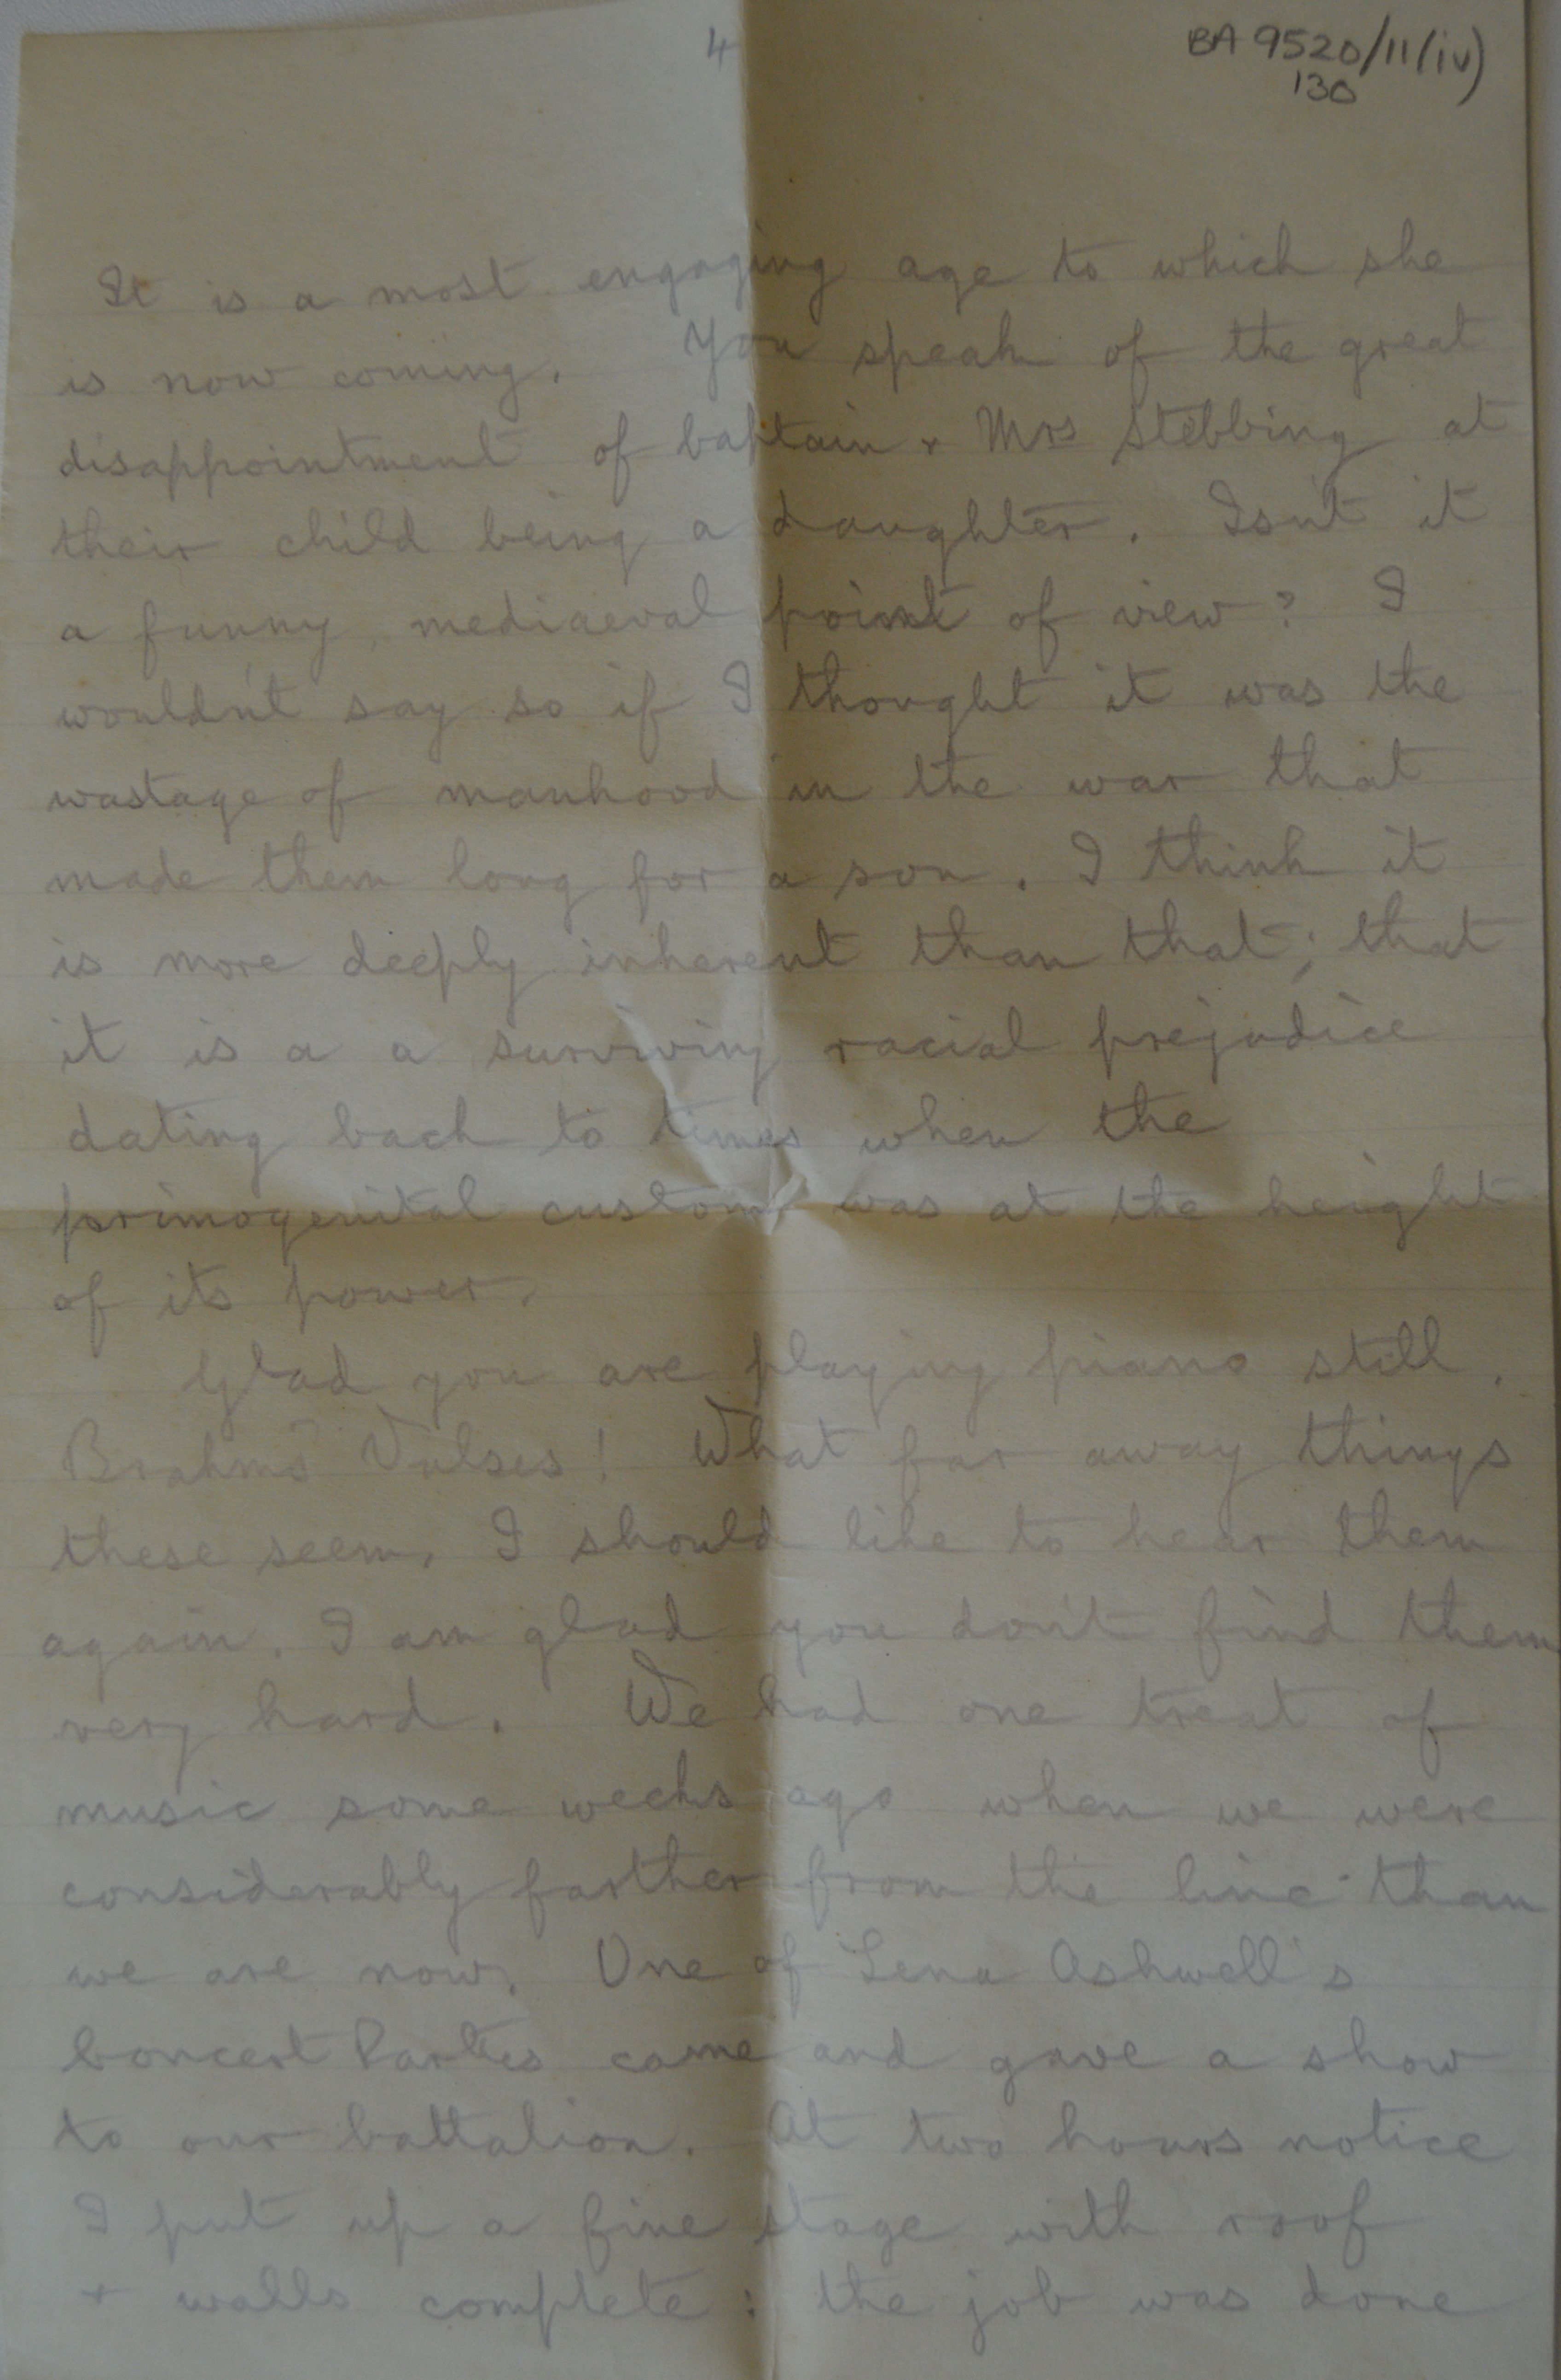 4
BA 9520/11(iv)
130
It is a most engaging age to which she
is now coming. You speak of the great
disappointment of Captain & Mrs Stebbing at
their child being a daughter. Isn't it
a funny, mediaeval point of view? I
wouldn't say so if I thought it was the
wastage of manhood in the war that
made them long for a son. I think it
is more deeply inherent than that; that
it is a a surviving racial prejudice
dating back to times when the
primogenital custom was at the height
of its power.
Glad you are playing piano still.
Brahms' Valses! What far away things
these seem. I should like to hear them
again. I am glad you don't find them
very hard. We had one treat of
music some weeks ago when we were
considerably farther from the line than
we are now. One of Lena Ashwell's
Concert Parties came and gave a show
to our battalion. At two hours notice
I put up a fine stage with roof
& walls complete: the job was done